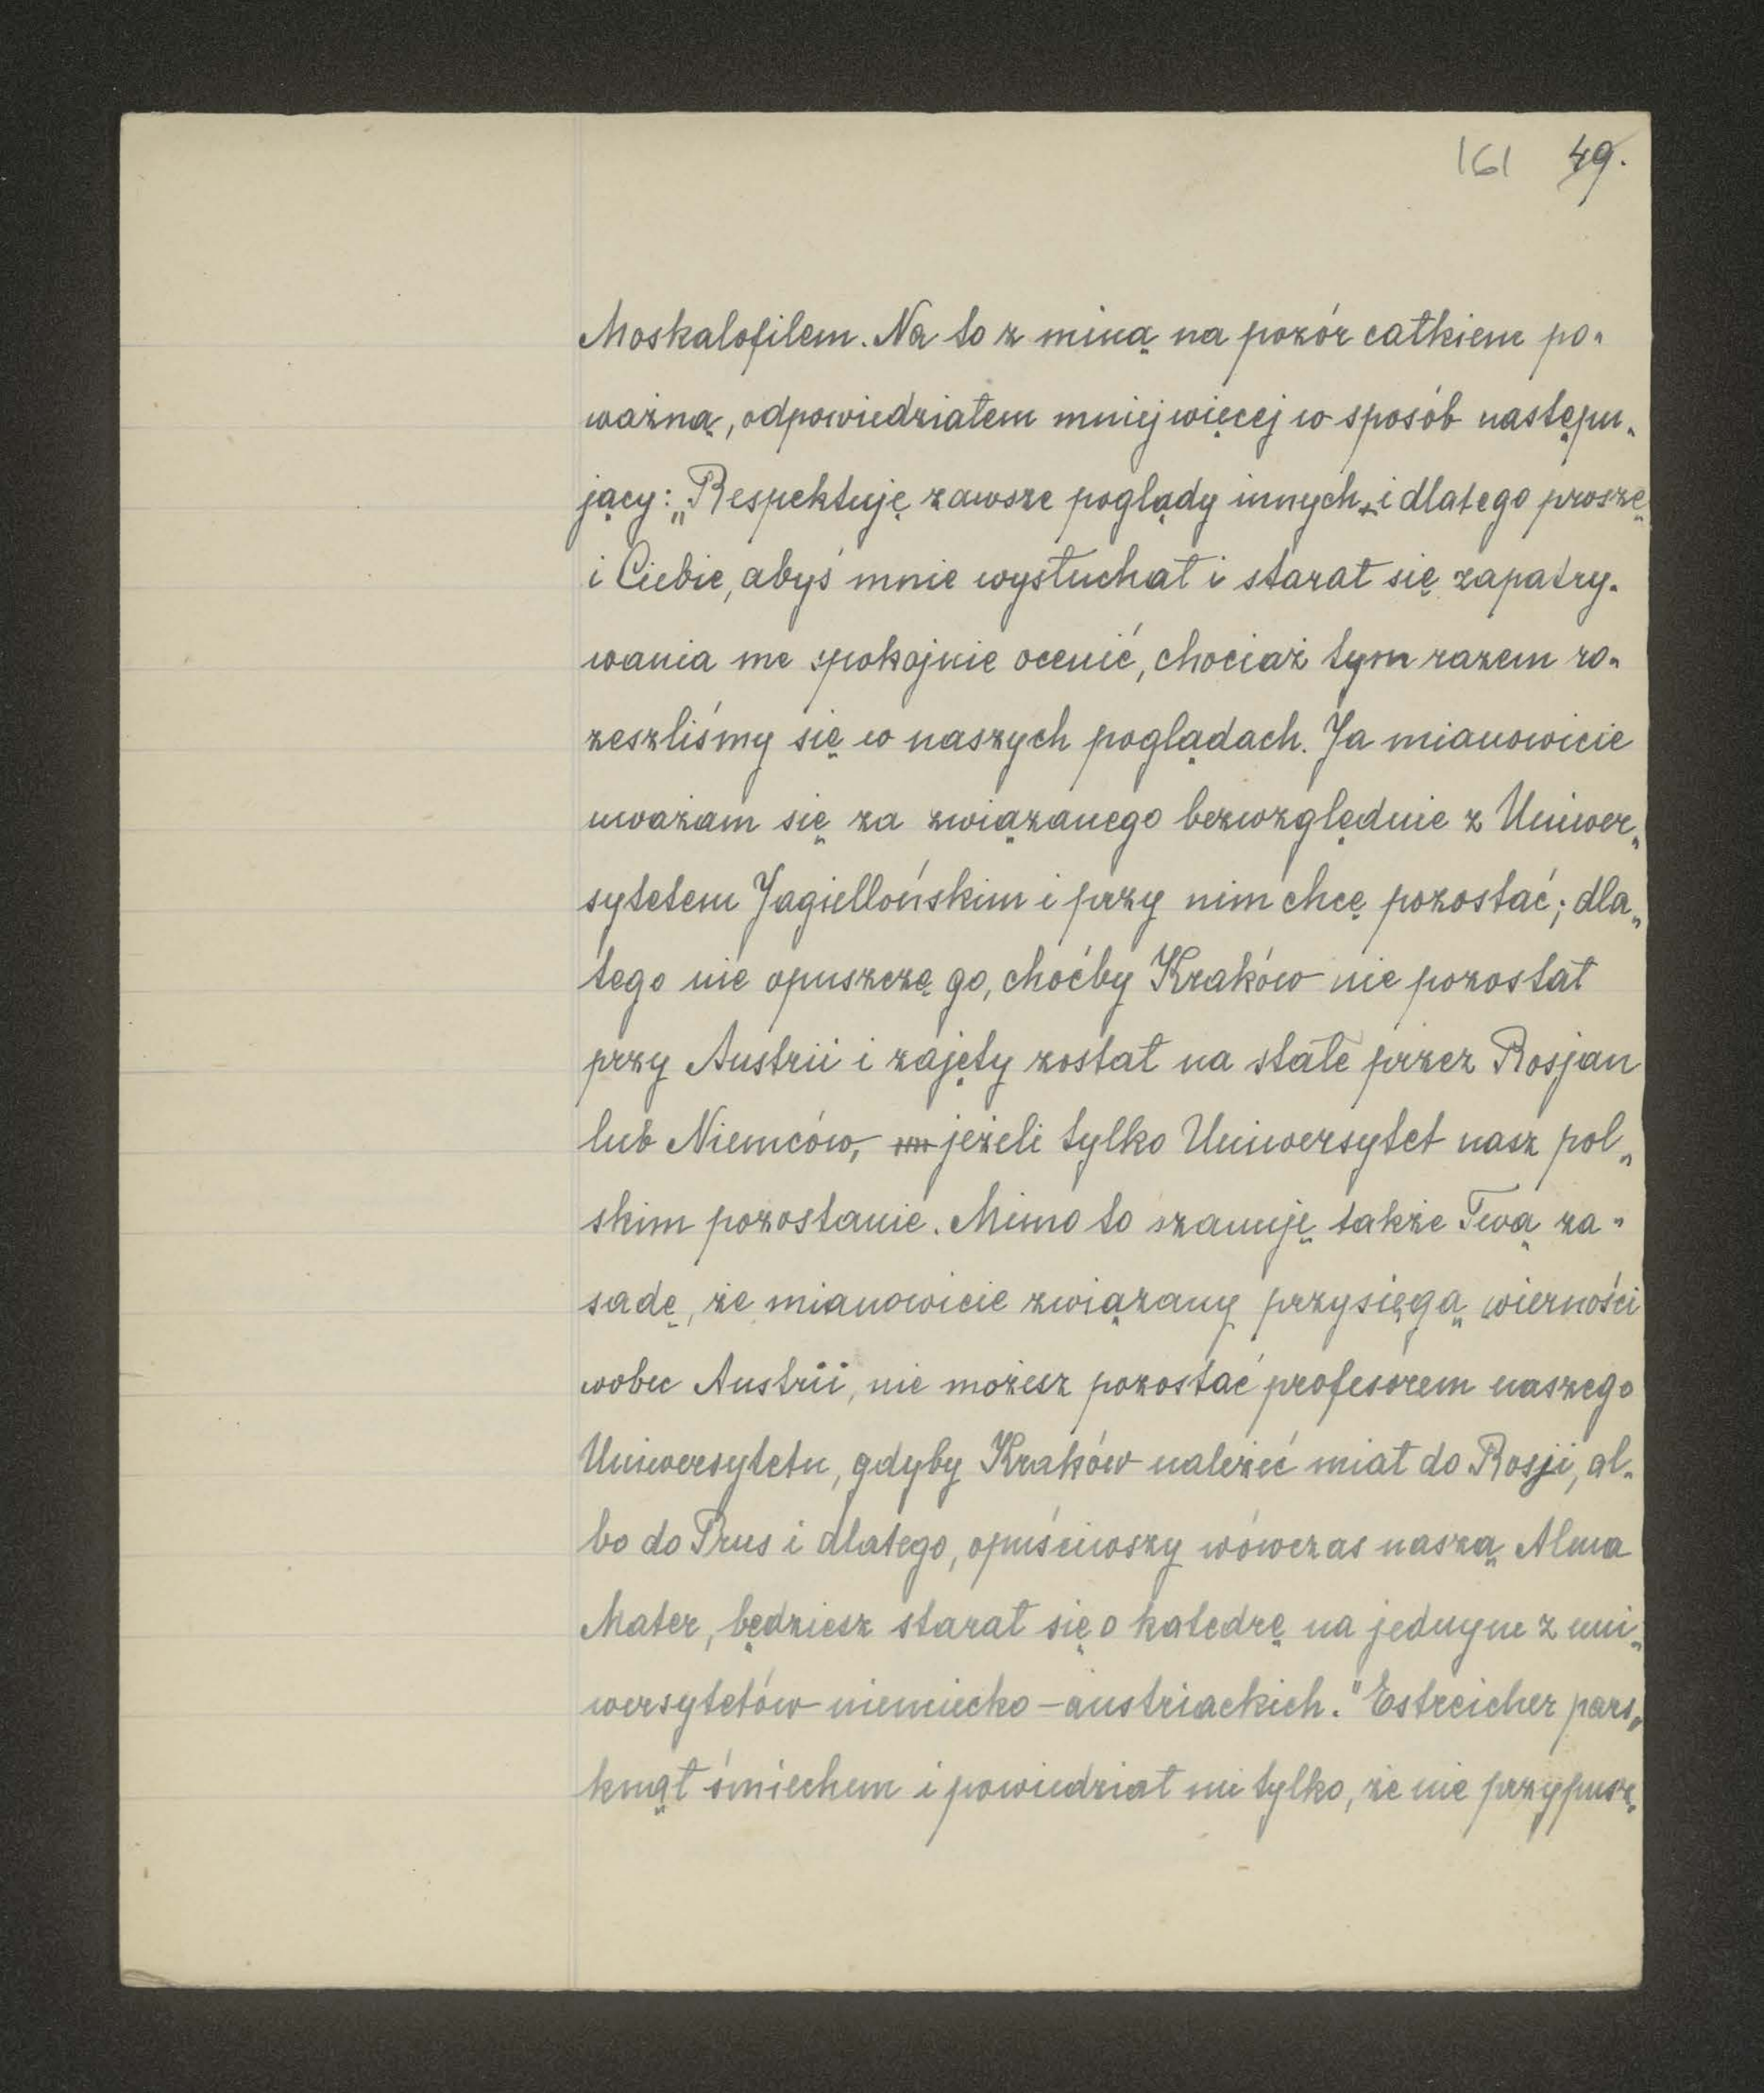 161 49.
Moskalofilem. Na to z miną na pozór całkiem po-
ważną, odpowiedziałem mniej więcej w sposób następu-
jący: „Respektuję zawsze poglądy innych i dlatego proszę
i Ciebie, abyś mnie wysłuchał i starał się zapatry-
wania me spokojnie ocenić, chociaż tym razem ro-
zeszliśmy się w naszych poglądach. Ja mianowicie
uważam się za związanego bezwzględnie z Uniwer-
sytetem Jagiellońskim i przy nim chcę pozostać; dla-
tego nie opuszczę go, choćby Kraków nie pozostał
przy Austrii i zajęty został na stałe przez Rosjan
lub Niemców, jeżeli tylko Uniwersytet nasz pol-
skim pozostanie. Mimo to szanuję także Twą za-
sadę, że mianowicie związany przysięgą wierności
wobec Austrii, nie możesz pozostać profesorem naszego
Uniwersytetu, gdyby Kraków należeć miał do Rosji, al-
bo do Prus i dlatego, opuściwszy wówczas naszą Alma
Mater, będziesz starał się o katedrę na jednym z uni-
wersytetów niemiecko-austriackich." Estreicher pars-
knął śmiechem i powiedział mi tylko, że nie przypusz-